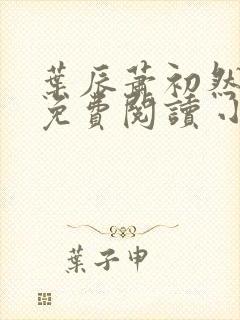 葉辰蕭初然
免費閱讀小
葉子申